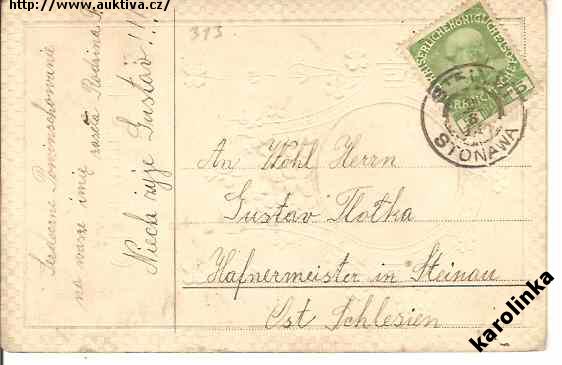 http://www.auktiva.cz/
313
Serdeczne Powinschowanie
na wasze imię Rodina F.
Niech żyje Gustav!!!
KAISERLICHE KÖNIGLICHE
5
STEINAU
STONAWA
An Wohl Herrn
Gustav Tlotka
Hafnermeister in Steinau
Ost Schlesien
karolinka